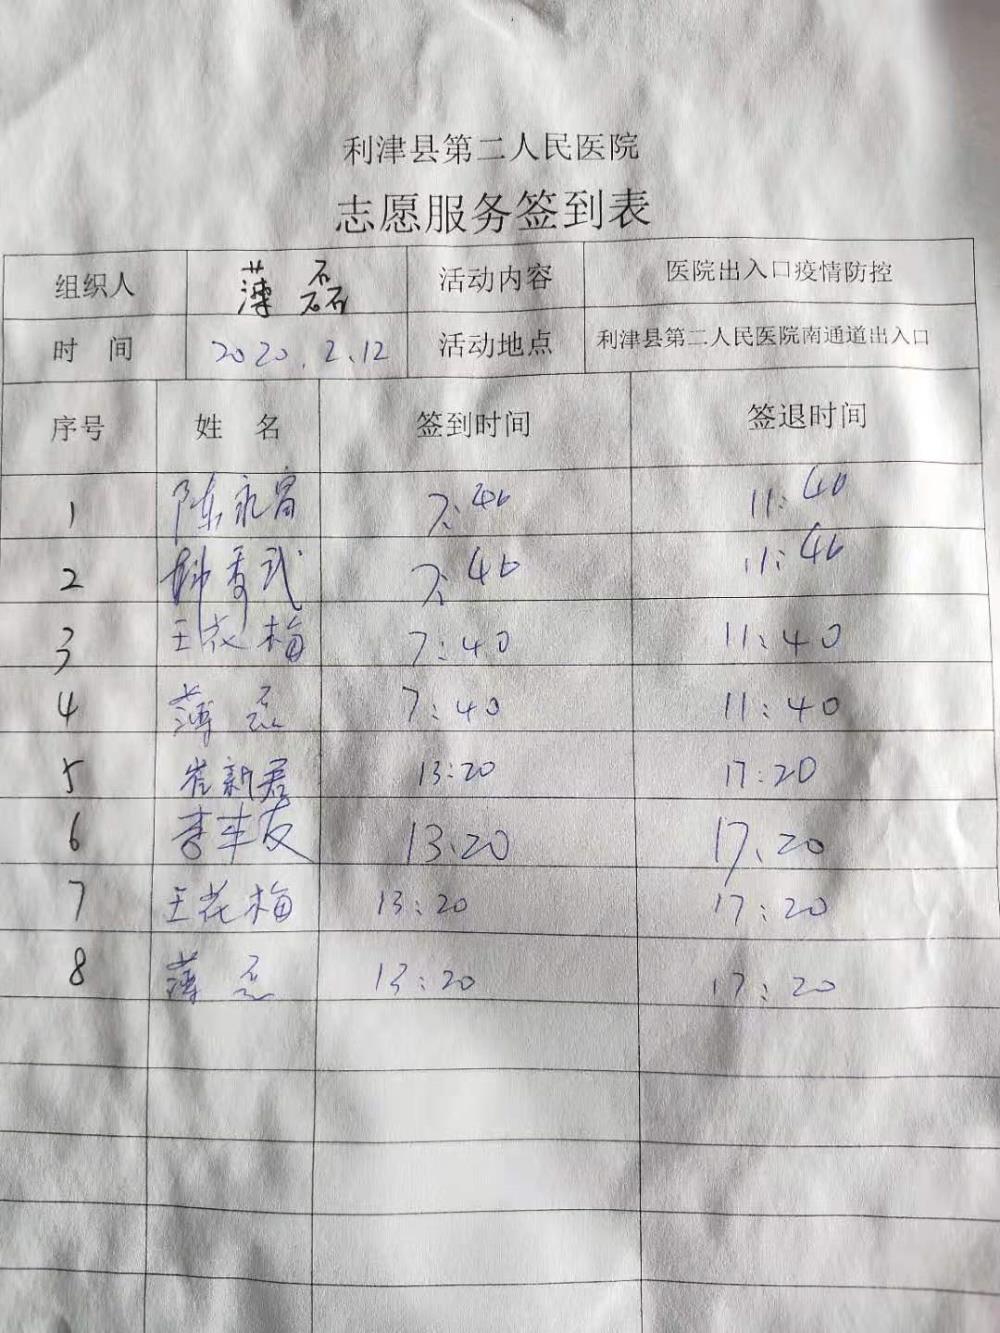 利津县第二人民医院
志愿服务签到表
组织人 薄磊 活动内容 医院出入口疫情防控
时 间 2020.2.12 活动地点 利津县第二人民医院南通道出入口
序号 姓 名 签到时间 签退时间
1 陈永 7:40 11:40
2 7:40 11:40
3 王花梅 7:40 11:40
4 薄磊 7:40 11:40
5 崔新君 13:20 17:20
6 李丰友 13.20 17.20
7 王花梅 13:20 17:20
8 薄磊 13:20 17:20